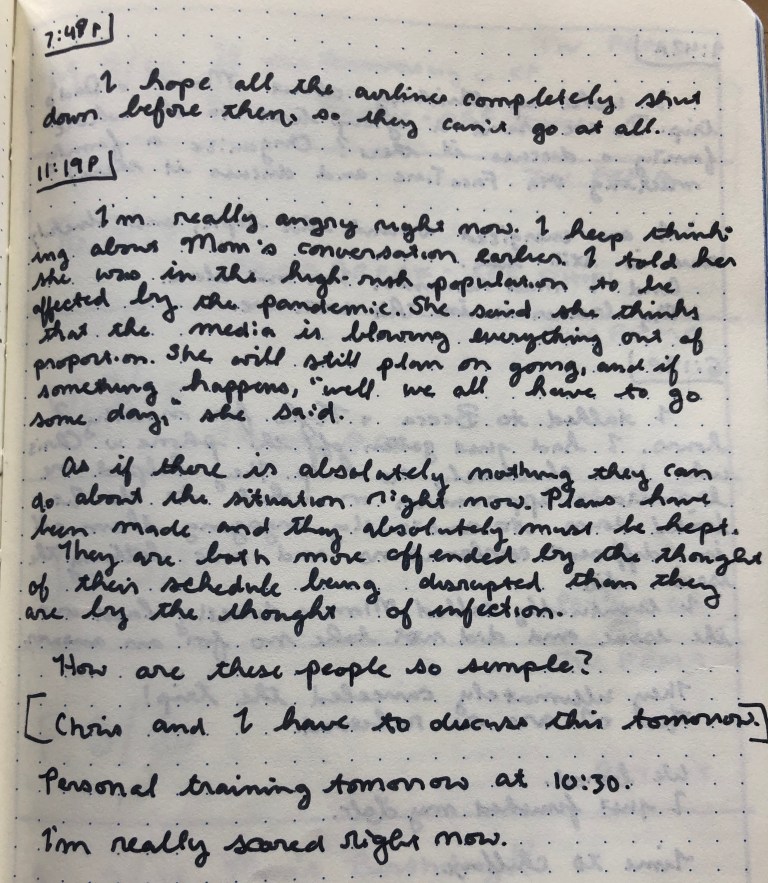 7:48P.
I hope all the airlines completely shut
down before then, so they can't go at all.
11:19P.
I'm really angry right now. I keep think-
ing about Mom's conversation earlier. I told her
she was in the high-risk population to be
affected by the pandemic. She said she thinks
that the media is blowing everything out of
proportion. She will still plan on going, and if
something happens, "well we all have to go
some day," she said.
As if there is absolutely nothing they can
do about the situation right now. Plans have
been made and they absolutely must be kept.
They are both more offended by the thought
of their schedule being disrupted than they
are by the thought of infection.
How are these people so simple?
[Chris and I have to discuss this tomorrow.]
Personal training tomorrow at 10:30.
I'm really scared right now.